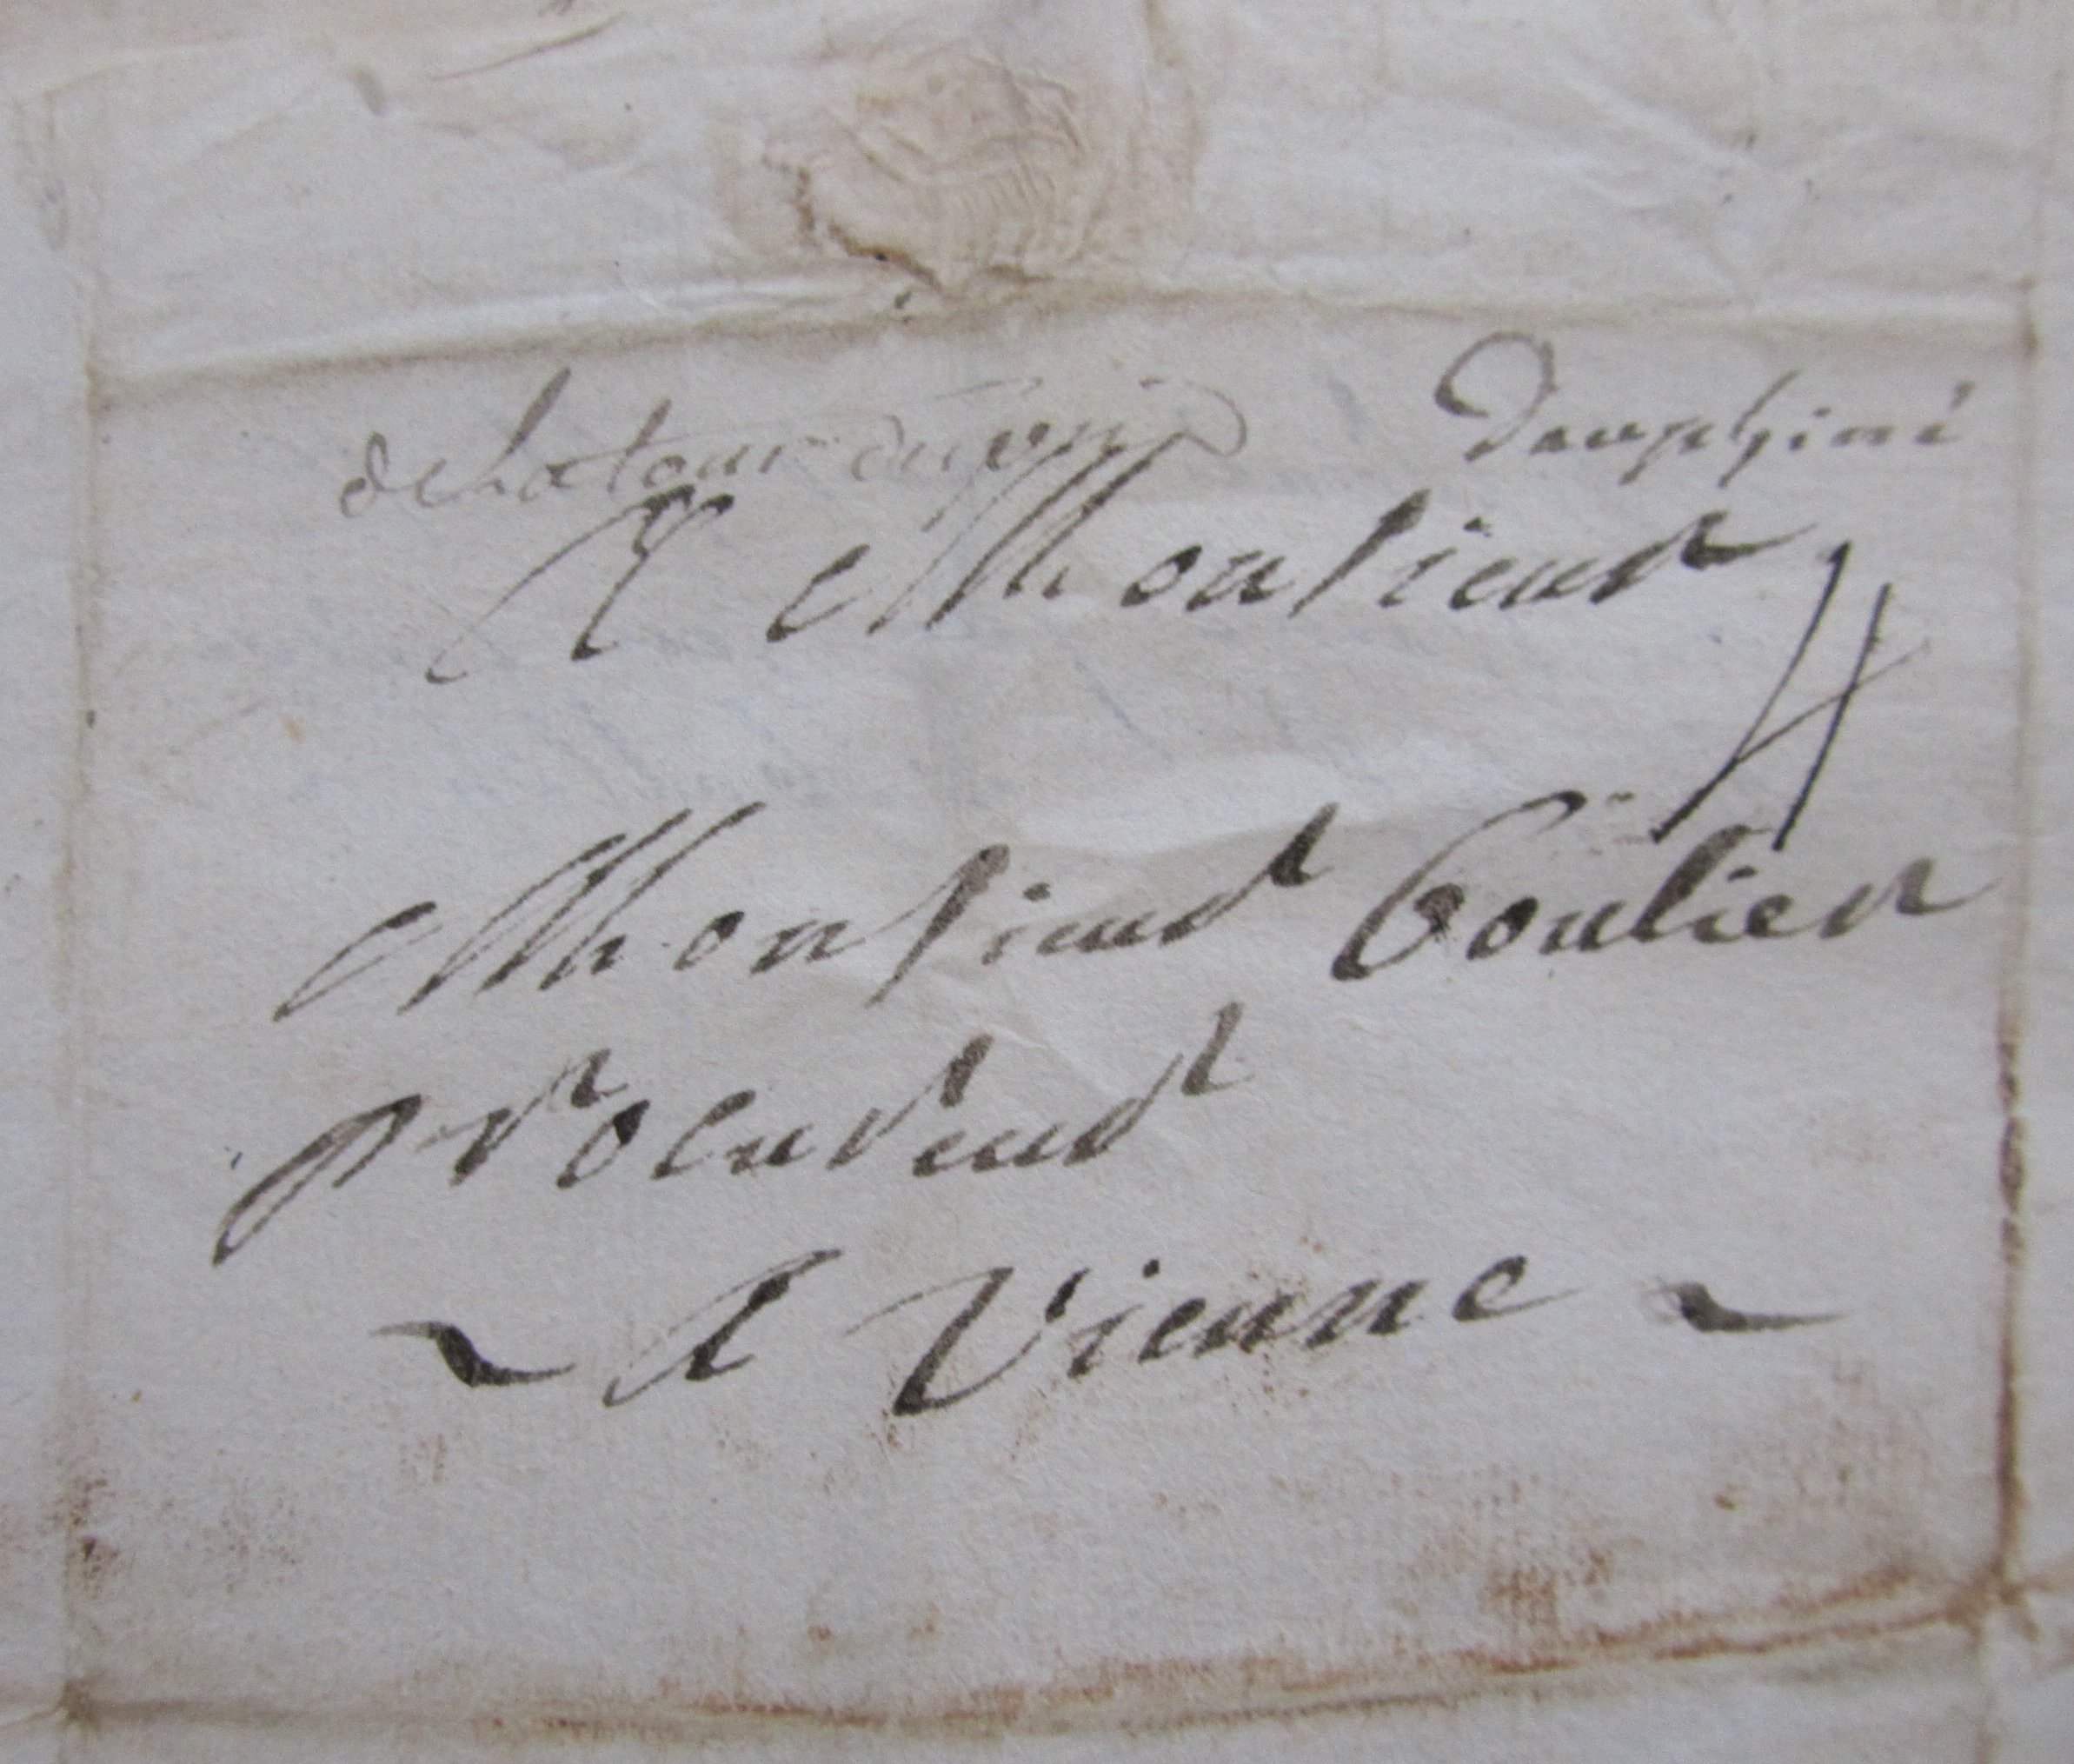 de Latour dupin Dauphiné
A Monsieur
4
Monsieur Boulier
procureur
~ A Vienne ~